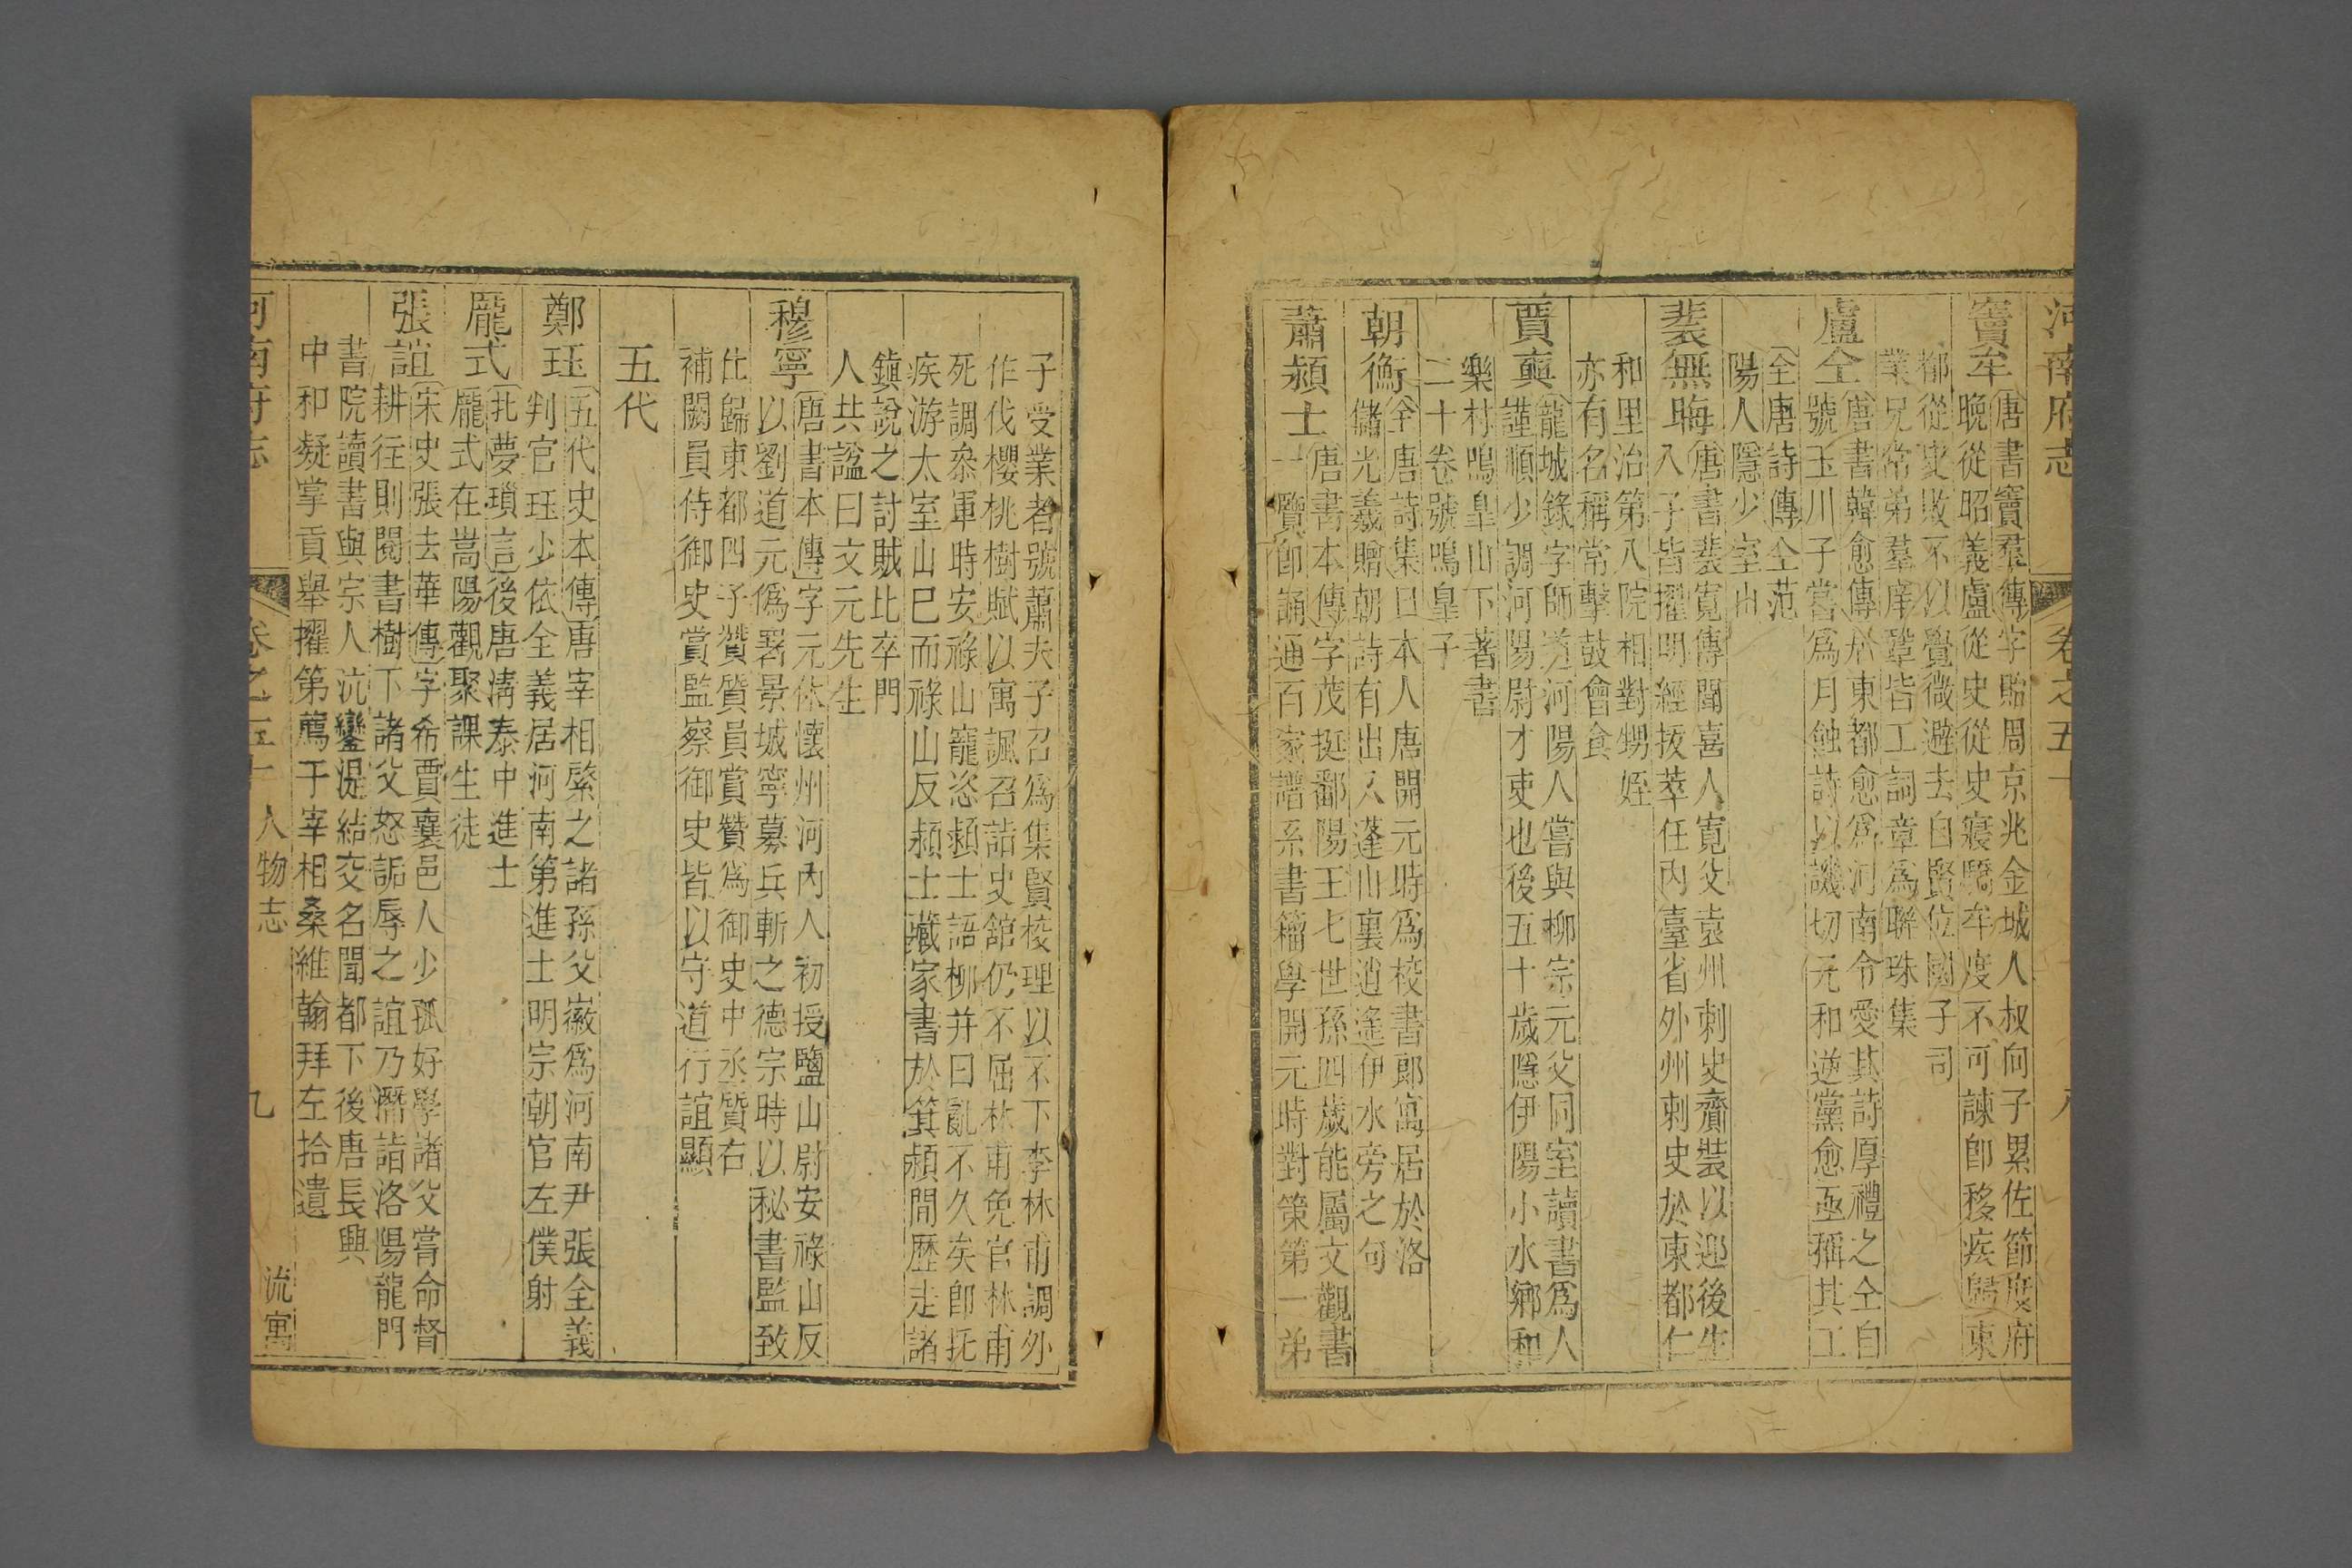 河南府志 卷之五十 八
竇牟
唐書竇羣傳字貽周京兆金城人叔向子累佐節度府
晚從昭義盧從史從史寖驕牟度不可諫卽移疾歸東
都從史敗不以覺微避去自賢位國子司
業兄常弟羣庠鞏皆工詞章爲聯珠集
盧仝
唐書韓愈傳居東都愈爲河南令愛其詩厚禮之仝自
號玉川子嘗爲月蝕詩以譏切元和逆黨愈亟稱其工
全唐詩傳仝范
陽人隱少室山
裴無晦
唐書裴寬傳聞喜人寬父袁州刺史齎裝以迎後生
入子皆擢明經拔萃任內臺省外州刺史於東都仁
和里治第八院相對甥姪
亦有名稱常擊鼓會食
賈奭
龍城錄字師道河陽人嘗與柳宗元父同室讀書爲人
謹順少調河陽尉才吏也後五十歲隱伊陽小水鄉和
樂村鳴皐山下著書
二十卷號鳴皐子
朝衡
全唐詩集日本人唐開元時爲校書郎寓居於洛
儲光羲贈朝詩有出入蓬山裏逍遙伊水旁之句
蕭潁士
唐書本傳字茂挺鄱陽王七世孫四歲能屬文觀書
一覽卽誦通百家譜系書籀學開元時對策第一弟
子受業者號蕭夫子召爲集賢校理以不下李林甫調外
作伐櫻桃樹賦以寓諷召詣史館仍不屈林甫免官林甫
死調叅軍時安祿山寵恣潁士語柳并曰亂不久矣卽託
疾游太室山巳而祿山反潁士藏家書於箕潁間歷走諸
鎮說之討賊比卒門
人共諡曰文元先生
穆寧
唐書本傳字元休懷州河內人初授鹽山尉安祿山反
以劉道元僞署景城寧募兵斬之德宗時以秘書監致
仕歸東都四子贊質員賞贊爲御史中丞質右
補闕員侍御史賞監察御史皆以守道行誼顯
五代
鄭珏
五代史本傳唐宰相綮之諸孫父徽爲河南尹張全義
判官珏少依全義居河南第進士明宗朝官左僕射
龐式
北夢瑣言後唐淸泰中進士
龐式在嵩陽觀聚課生徒
張誼
宋史張去華傳字希賈襄邑人少孤好學諸父嘗命督
耕往則閱書樹下諸父怒詬辱之誼乃潛詣洛陽龍門
書院讀書與宗人沆鸞湜結交名聞都下後唐長興
中和凝掌貢舉擢第薦于宰相桑維翰拜左拾遺
河南府志 卷之五十 人物志 九 流寓